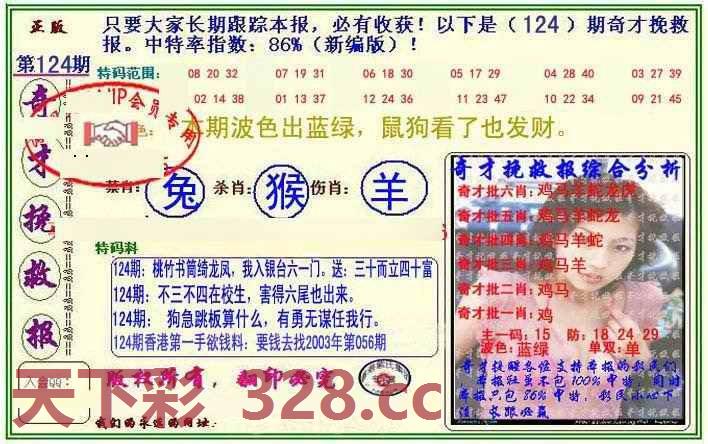 正版
只要大家长期跟踪本报，必有收获！以下是（124）期奇才挽救
报。中特率指数：86%（新编版）！
第124期
特码范围：
08 20 32 07 19 31 06 18 30 05 17 29 04 28 40 03 27 39
02 14 38 01 13 37 12 24 36 11 23 47 10 22 34 09 21 45
VIP会员专用
本期波色出蓝绿，鼠狗看了也发财。
禁肖： 兔 杀肖： 猴 伤肖： 羊
奇才挽救报
特码料
124期：桃竹书筒绮龙凤，我入银台六一门。送：三十而立四十富
124期：不三不四在校生，害得六尾也出来。
124期： 狗急跳板算什么，有勇无谋任我行。
124期香港第一手欲钱料：要钱去找2003年第056期
版权所有，翻印必究
我们的永远的网址：
奇才挽救报综合分析
奇才批六肖：鸡马羊蛇龙
奇才批五肖：鸡马羊蛇龙
奇才批四肖：鸡马羊蛇
奇才批三肖：鸡马羊
奇才批二肖：鸡马
奇才批一肖：鸡
主一码：15 防：18 24 29
波色：蓝绿 单双：单
奇才挽救报各位支持本报的彩民们
本报社虽不包100%中特，同时
本报只包86%中特，彩民小心下
天下彩 328.cc